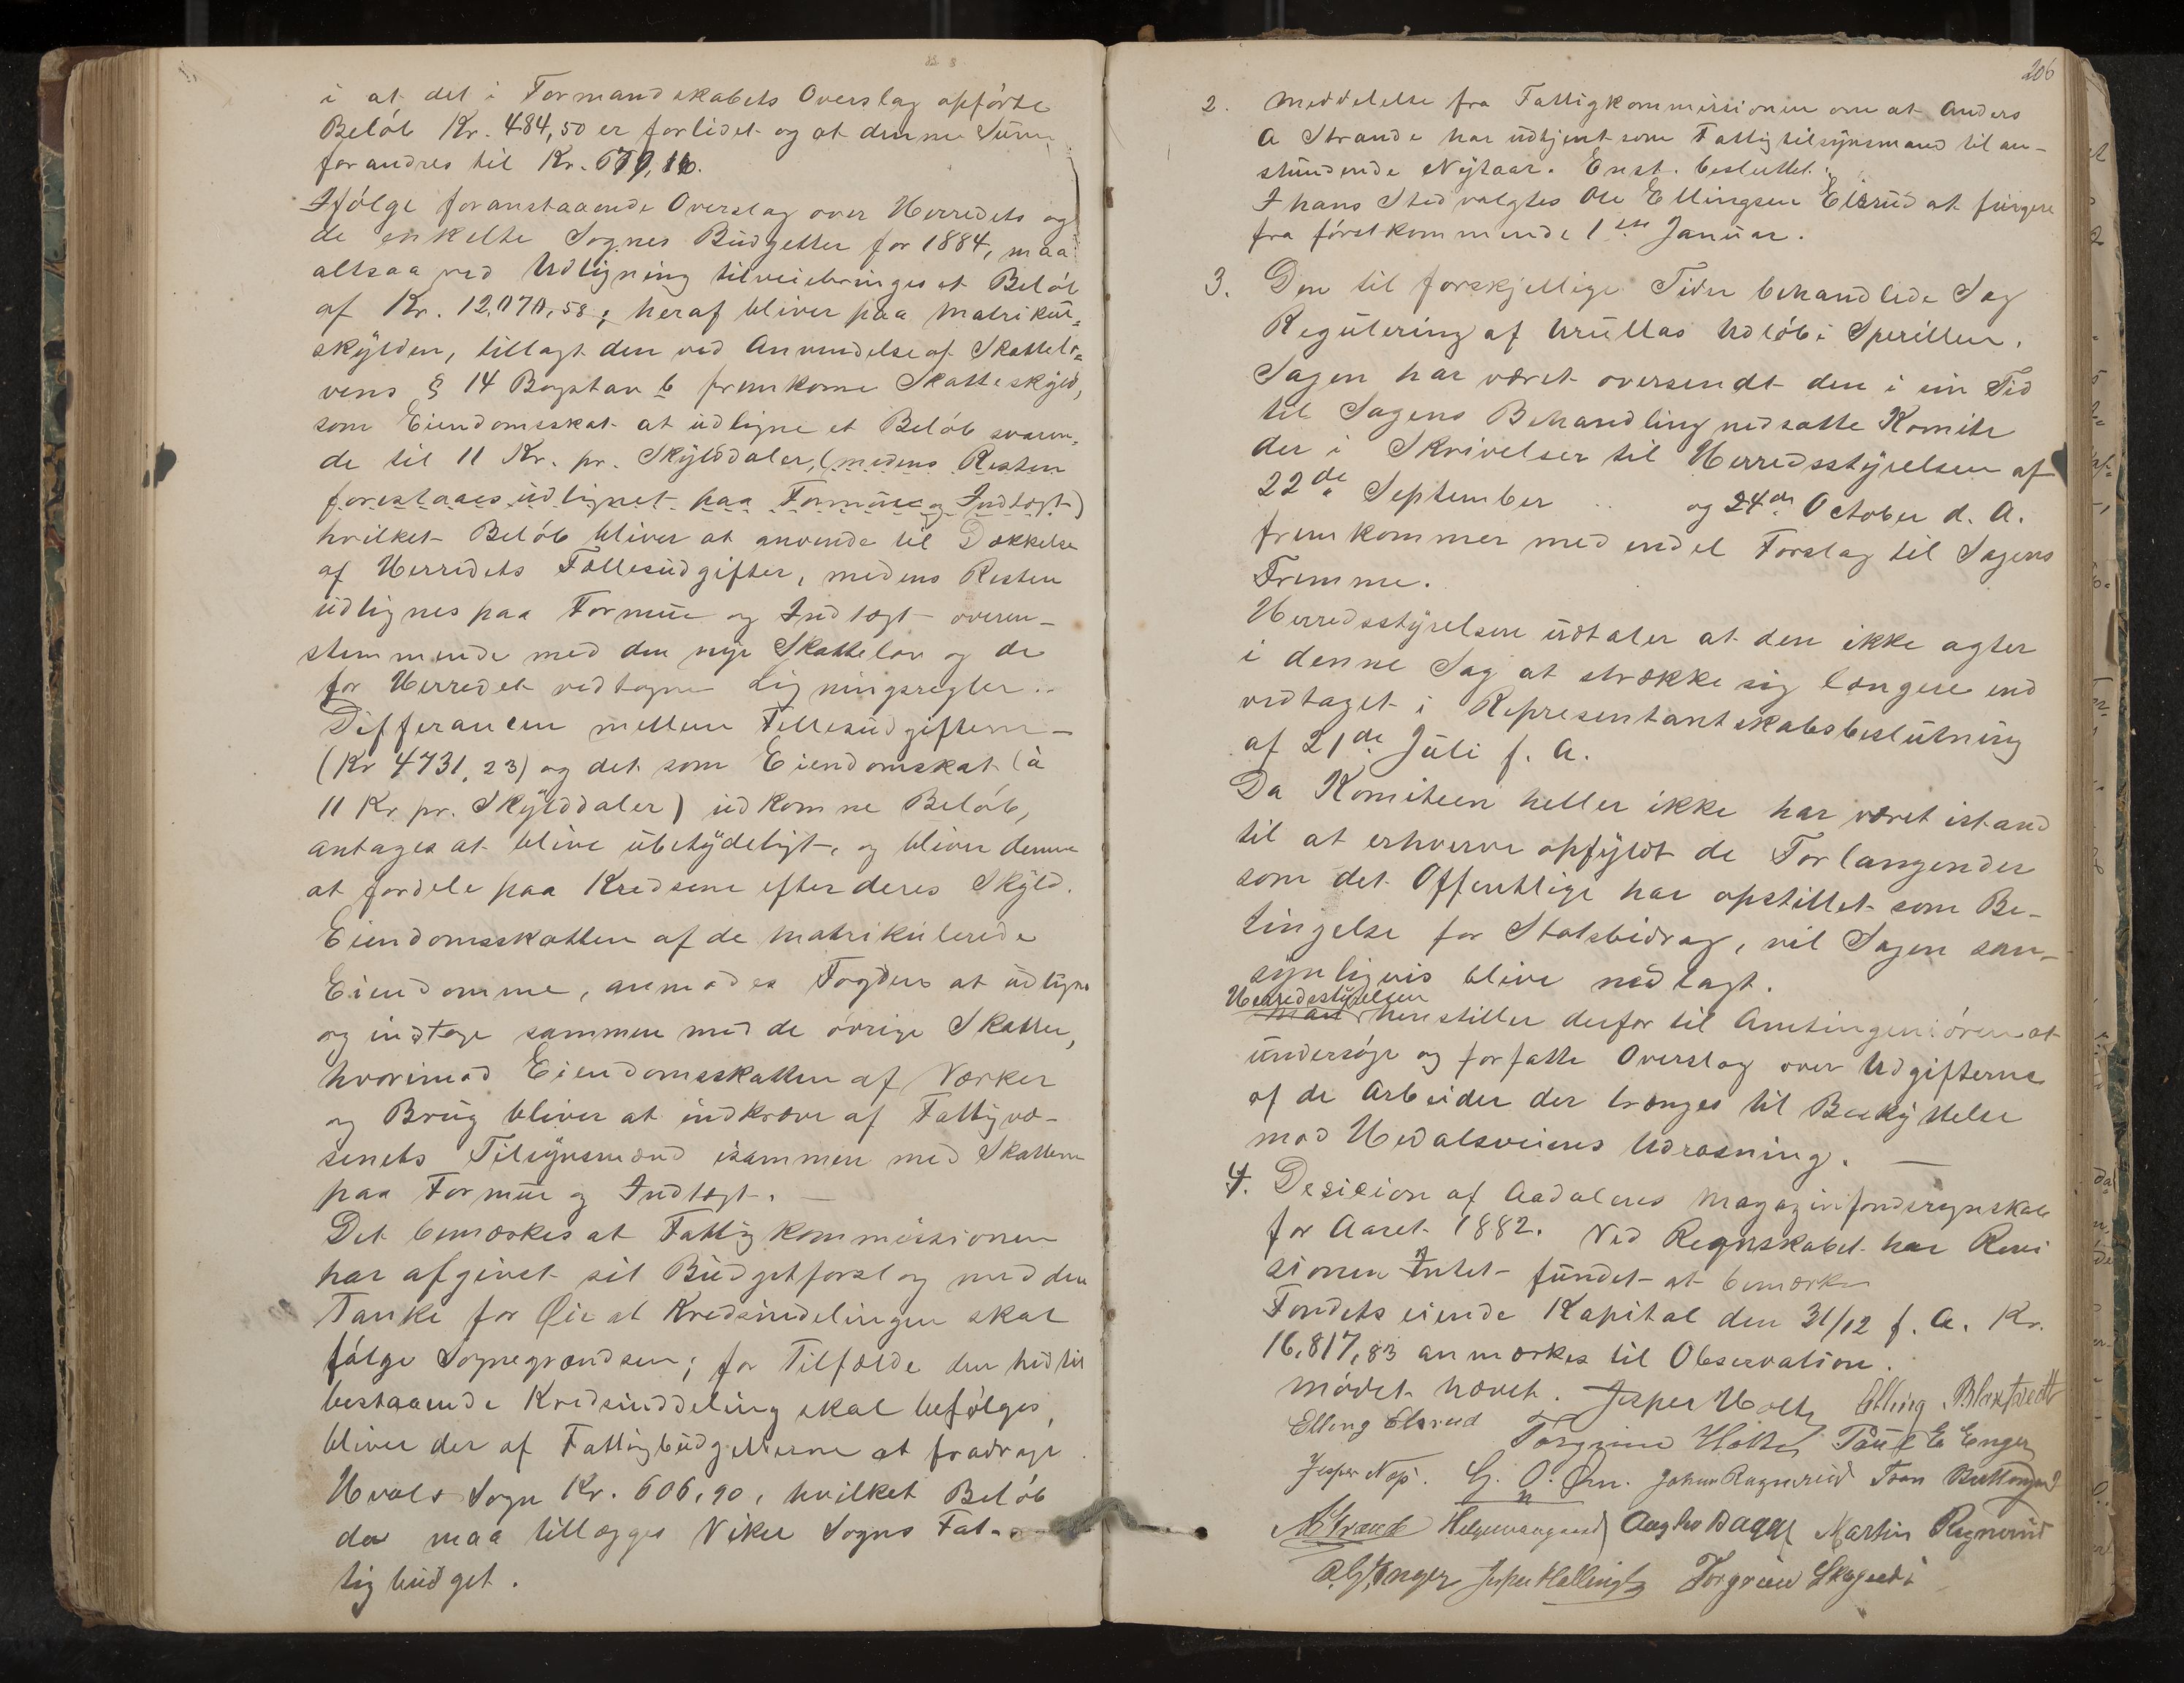 i at det i Formandskabets Overslag opförte
Belöb Kr. 484,50 er forlidet og at denne Sum
forandres til Kr. 679,16.
Ifölge foranstaaende Overslag over Herredets og
de enkelte Sognes Budgetter for 1884, maa
altsaa ved Udligning tilveiebringes et Belöb
af Kr. 12,070,58; heraf bliver paa Matrikul-
skylden, tillagt den ved Anvendelse af Skattelo-
vens § 14 Bogstav b fremkomne Skatteskyld,
som Eiendomsskat at udligne et Belöb svaren-
de til 11 Kr. pr. Skylddaler, (medens Resten
forestaaes udlignet paa Formue og Indtægt)
hvilket Belöb bliver at anvende til Dækkelse
af Herredets Fællesudgifter, medens Resten
udlignes paa Formue og Indtægt overen-
stemmende med den nye Skattelov og de
for Herredet vedtagne Ligningsregler..
Differancen mellem Fellesudgifterne —
(Kr 4731,23) og det som Eiendomskat (à
11 Kr pr. Skylddaler) udkomne Belöb,
antages at blive ubetydeligt, og bliver denne
at fordele paa Kredsene efter deres Skyld.
Eiendomsskatten af de matrikulerede
Eiendomme, anmodes Fogden at udligne
og indtage sammen med de övrige Skatter,
hvorimod Eiendomsskatten af Værker
og Brug bliver at indkræve af Fattigvæ-
senets Tilsynsmænd isammen med Skatten
paa Formue og Indtægt. —
Det bemærkes at Fattigkommissionen
har afgivet sit Budgetforslag med den
Tanke for Øie at Kredsindelingen skal
fölge Sognegrændsen; for Tilfælde den hidtil
bestaaende Kredsinddeling skal befölges,
bliver der af Fattigbudgetterne at fradrage
Hvals Sogn Kr. 606,90, hvilket Belöb
da maa tillægges Viker Sogns Fat-
tigbudget.
206
2. Meddelelse fra Fattigkommissionen om at Anders
A Strande har udtjent som Fattigtilsynsmand til an-
stundende Nytaar. Enst. besluttet:
I hans Sted valgtes Ole Ellingsen Elsrud at fungere
fra förstkommende 1ste Januar.
3. Den til forskjellige Tider behandlede Sag
Regulering af Urullas Udlöb i Sperillen.
Sagen har været oversendt den i sin Tid
til Sagens Behandling nedsatte Komite
der i Skrivelser til Herredsstyrelsen af
22de September og 24de October d. A.
fremkommer med endel Forslag til Sagens
Fremme.
Herredsstyrelsen udtaler at den ikke agter
i denne Sag at strække sig længere end
vedtaget i Representantskabsbeslutning
af 21de Juli f. A.
Da Komiteen heller ikke har været istand
til at erhverve opfyldt de Forlangender
som det Offentlige har opstillet som Be-
tingelse for Statsbidrag, vil Sagen san-
synligvis blive nedlagt.
Herredsstyrelsen
Man henstiller derfor til Amtingeniören at
undersöge og forfatte Overslag over Udgifterne
af de Arbeider der trænges til Beskyttelse
mod Hedalsveiens Udrasning. —
4. Desision af Aadalens Magazinfondsregnskab
for Aaret 1882. Ved Regnskabet har Revi
sionen Intet fundet at bemærke
Fondets eiende Kapital den 31/12 f. A. Kr.
16,817,83 anmærkes til Observation.
Mödet hævet. Jesper Holte Elling Blaxtvedt
Elling Elsrud Torgrim Holte Paul E Enger
Jesper Næs. G. O. Øen. Johan Ragnrud Iver
AStrande Aug Martin Ragnrud
O.G. Enger Jesper Hallingby Torgrim